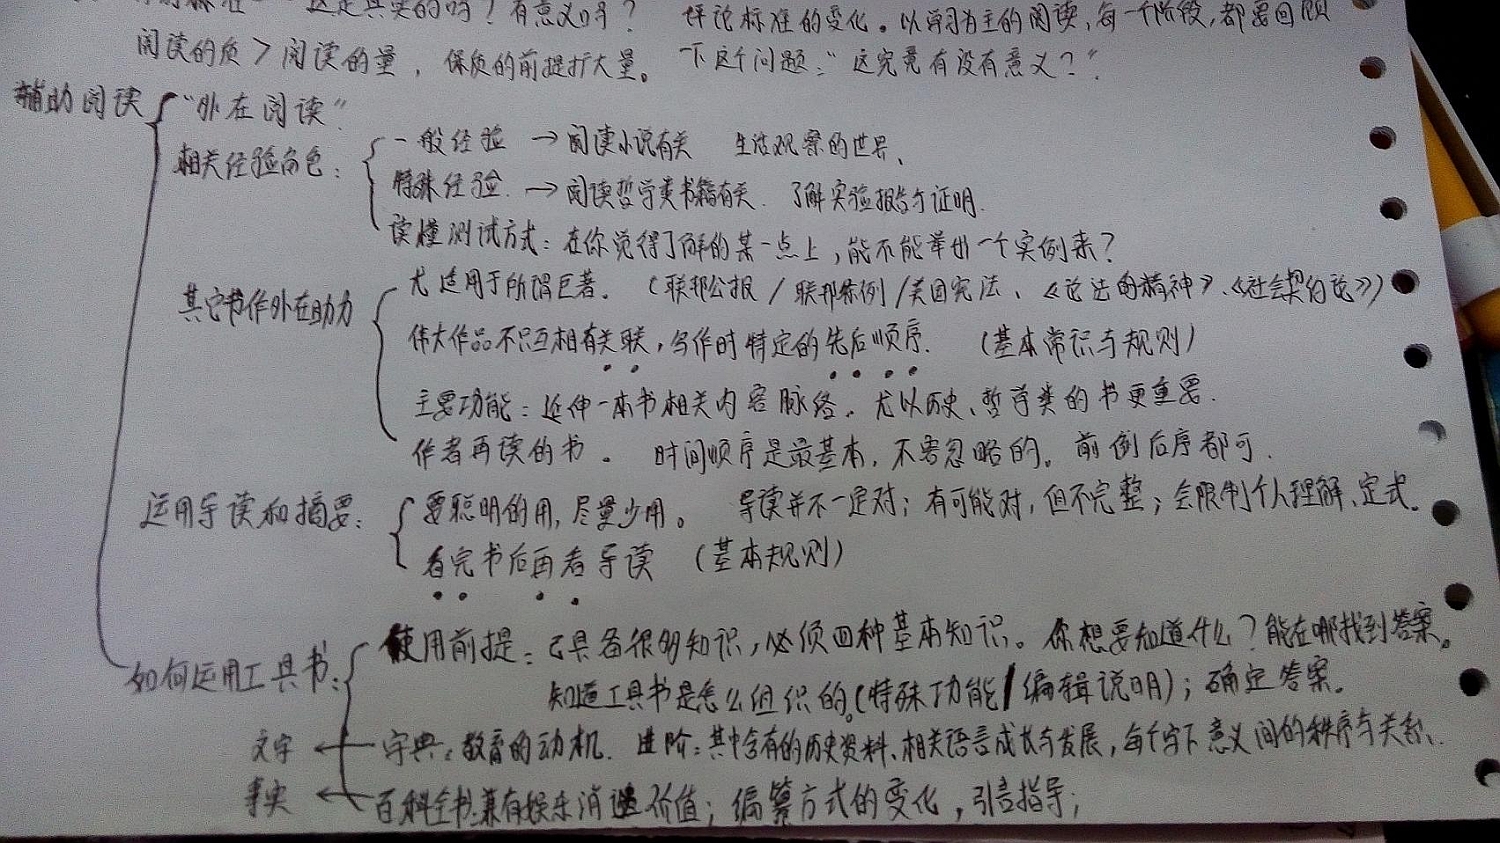 这是真实的吗？有意义吗？ 评论标准的变化。以学习为主的阅读，每一个阶段，都要回顾
阅读的质＞阅读的量，保质的前提扩大量。 下这个问题：“这究竟有没有意义？”
辅助阅读 “外在阅读”
相关经验角色： 一般经验 → 阅读小说有关 生活观察的世界、
特殊经验. → 阅读哲学类书籍有关. 了解实验报告与证明.
读懂测试方式：在你觉得了解的某一点上，能不能举出一个实例来？
其它书作外在助力 尤适用于所谓巨著。（联邦公报／联邦条例／美国宪法、《论法的精神》、《社会契约论》）
伟大作品不只互相有关联，写作时特定的先后顺序. （基本常识与规则）
主要功能：延伸一本书相关内容脉络. 尤以历史、哲学类的书更重要.
作者再读的书。 时间顺序是最基本，不容忽略的。前倒后序都可.
运用导读和摘要： 要聪明的用，尽量少用。 导读并不一定对；有可能对，但不完整；会限制个人理解、定式.
看完书后再看导读 （基本规则）
如何运用工具书： 使用前提：已具备很多知识，必须四种基本知识。你想要知道什么？能在哪找到答案。
知道工具书是怎么组织的。（特殊功能/编辑说明）；确定答案。
文字 ← 字典：教育的动机. 进阶：其中含有的历史资料、相关语言成长与发展，每个字下意义间的秩序与关系、.
事实 ← 百科全书：兼有娱乐消遣价值；编纂方式的变化，引言指导；